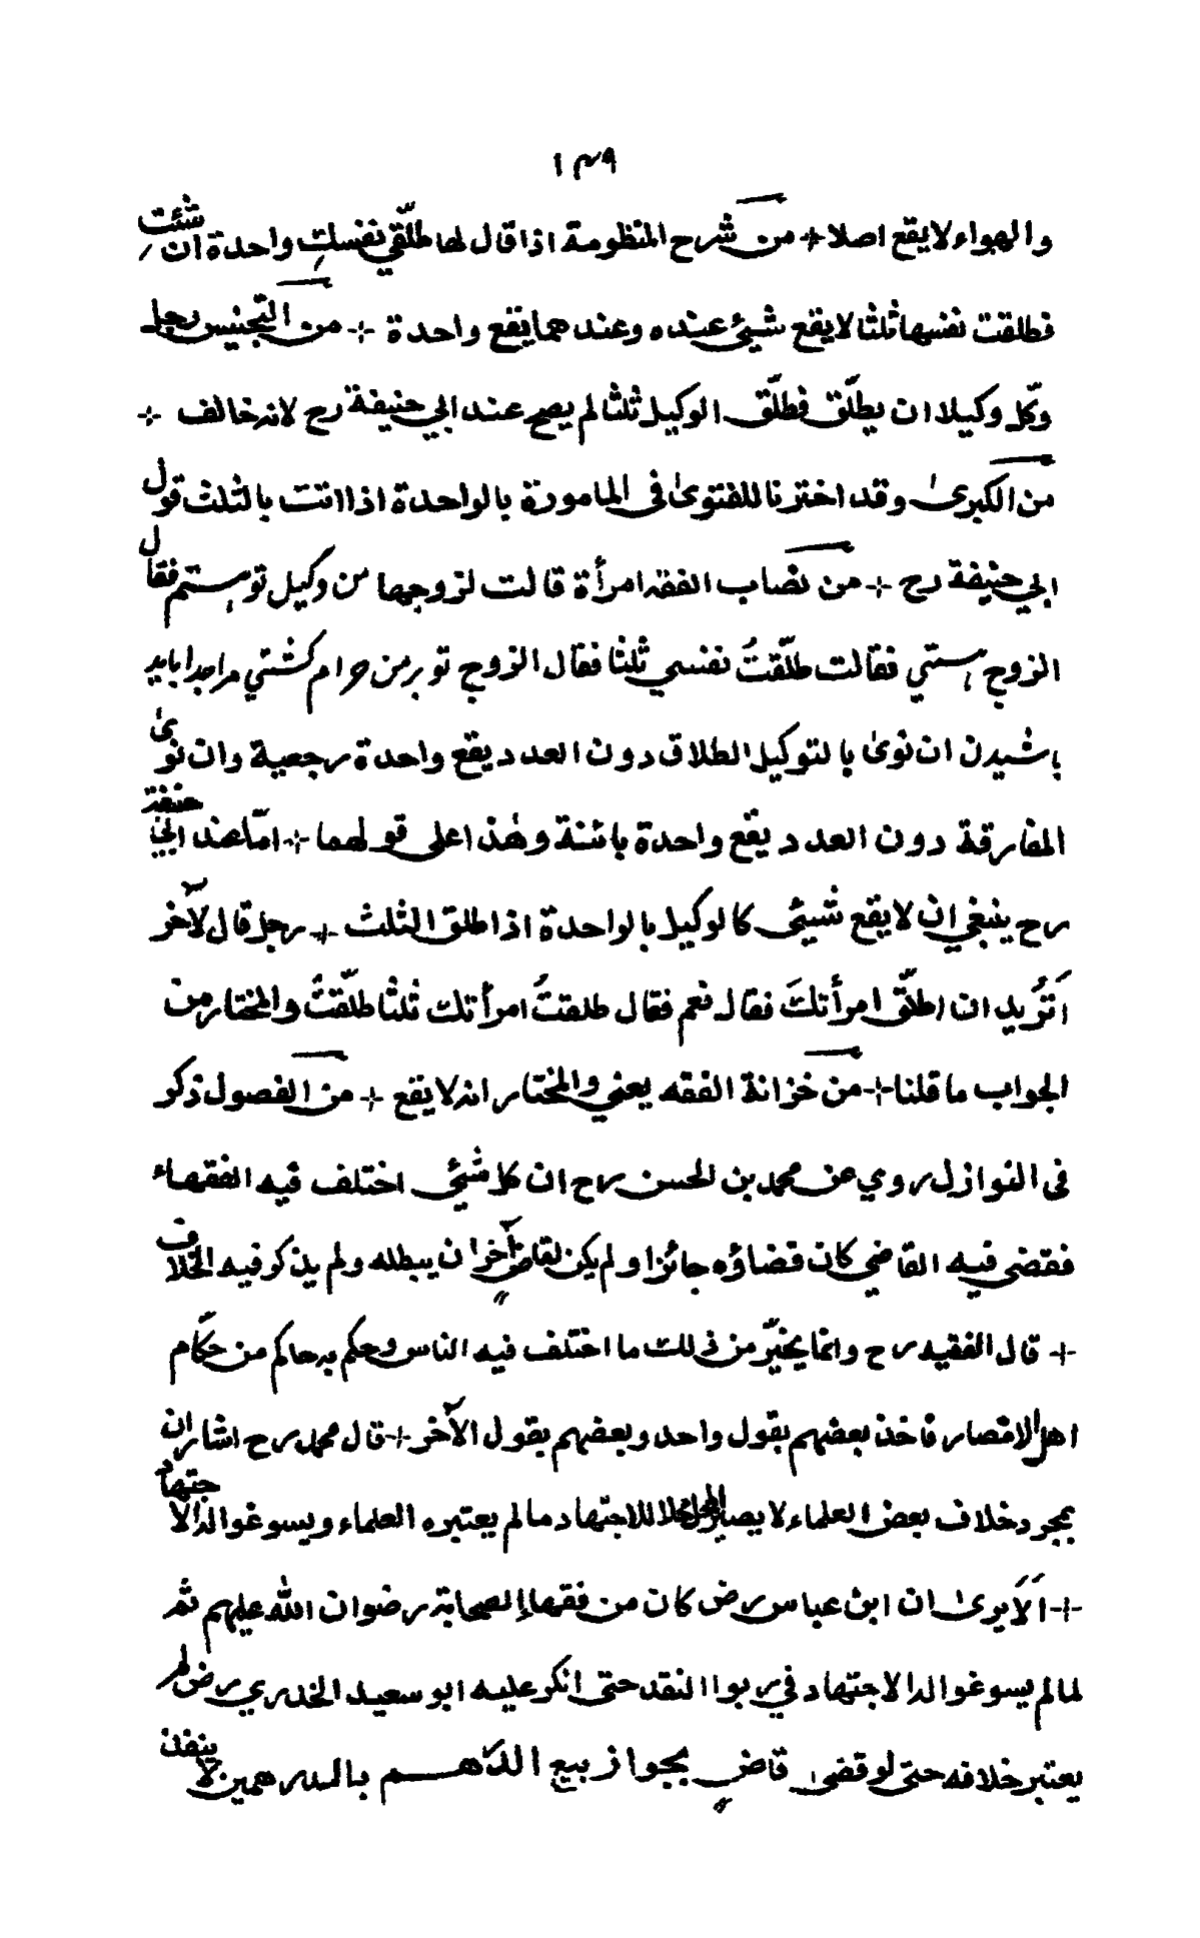 ١٤٩
والهواء لا يقع اصلا + من شرح المنظومة اذا قال لها طلّقي نفسكِ واحدة ان شئتِ
فطلقت نفسها ثلثا لا يقع شيئ عنده وعندهما يقع واحدة + من التجنيس رجل
وكّل وكيلا ان يطلّق فطلّق الوكيل ثلثا لم يصح عند ابي حنيفة رح لانه خالف +
من الكبرىٰ وقد اخترنا للفتوىٰ في المامورة بالواحدة اذا اتت بالثلث قول
ابي حنيفة رح + من نصاب الفقه امرأة قالت لزوجها من وكيل تو هستم فقال
الزوج هستي فقالت طلّقتُ نفسي ثلثا فقال الزوج تو برمن حرام گشتي مراجدا بايد
باشيدن ان نوىٰ بالتوكيل الطلاق دون العدد يقع واحدة رجعية وان نوىٰ
المفارقة دون العدد يقع واحدة بائنة وهٰذا على قولهما + امّا عند ابي حنيفة
رح ينبغي ان لا يقع شيئ كالوكيل بالواحدة اذا طلق الثلث + رجل قال لآخر
اَتُريد ان اطلّق امرأتكَ فقال نعم فقال طلقتُ امرأتك ثلثا طلّقتُ والمختار من
الجواب ما قلنا + من خزانة الفقه يعني والمختار انه لا يقع + من الفصول ذكر
في النوازل روي عن محمد بن الحسن رح ان كل شيئ اختلف فيه الفقهاء
فقضى فيه القاضي كان قضاؤه جائزا ولم يكن لقاضٍ آخر ان يبطله ولم يذكر فيه الخلاف
+ قال الفقيه رح وانما يخيّر من ذلك ما اختلف فيه الناس وحكم به حاكم من حكّام
اهل الامصار فاخذ بعضهم بقول واحد وبعضهم بقول الآخر + قال محمد رح اشار ان
بمجرد خلاف بعض العلماء لا يصير المحل محلا للاجتهاد ما لم يعتبره العلماء ويسوغوا له الاجتهاد
+ اَلَا يرىٰ ان ابن عباس رض كان من فقهاء الصحابة رضوان الله عليهم ثم
لما لم يسوغوا له الاجتهاد في ربوا النقد حتى انكر عليه ابو سعيد الخدري رض لم
يعتبر خلافه حتى لو قضىٰ قاضٍ بجواز بيع الدرهم بالدرهمين لا ينفذ